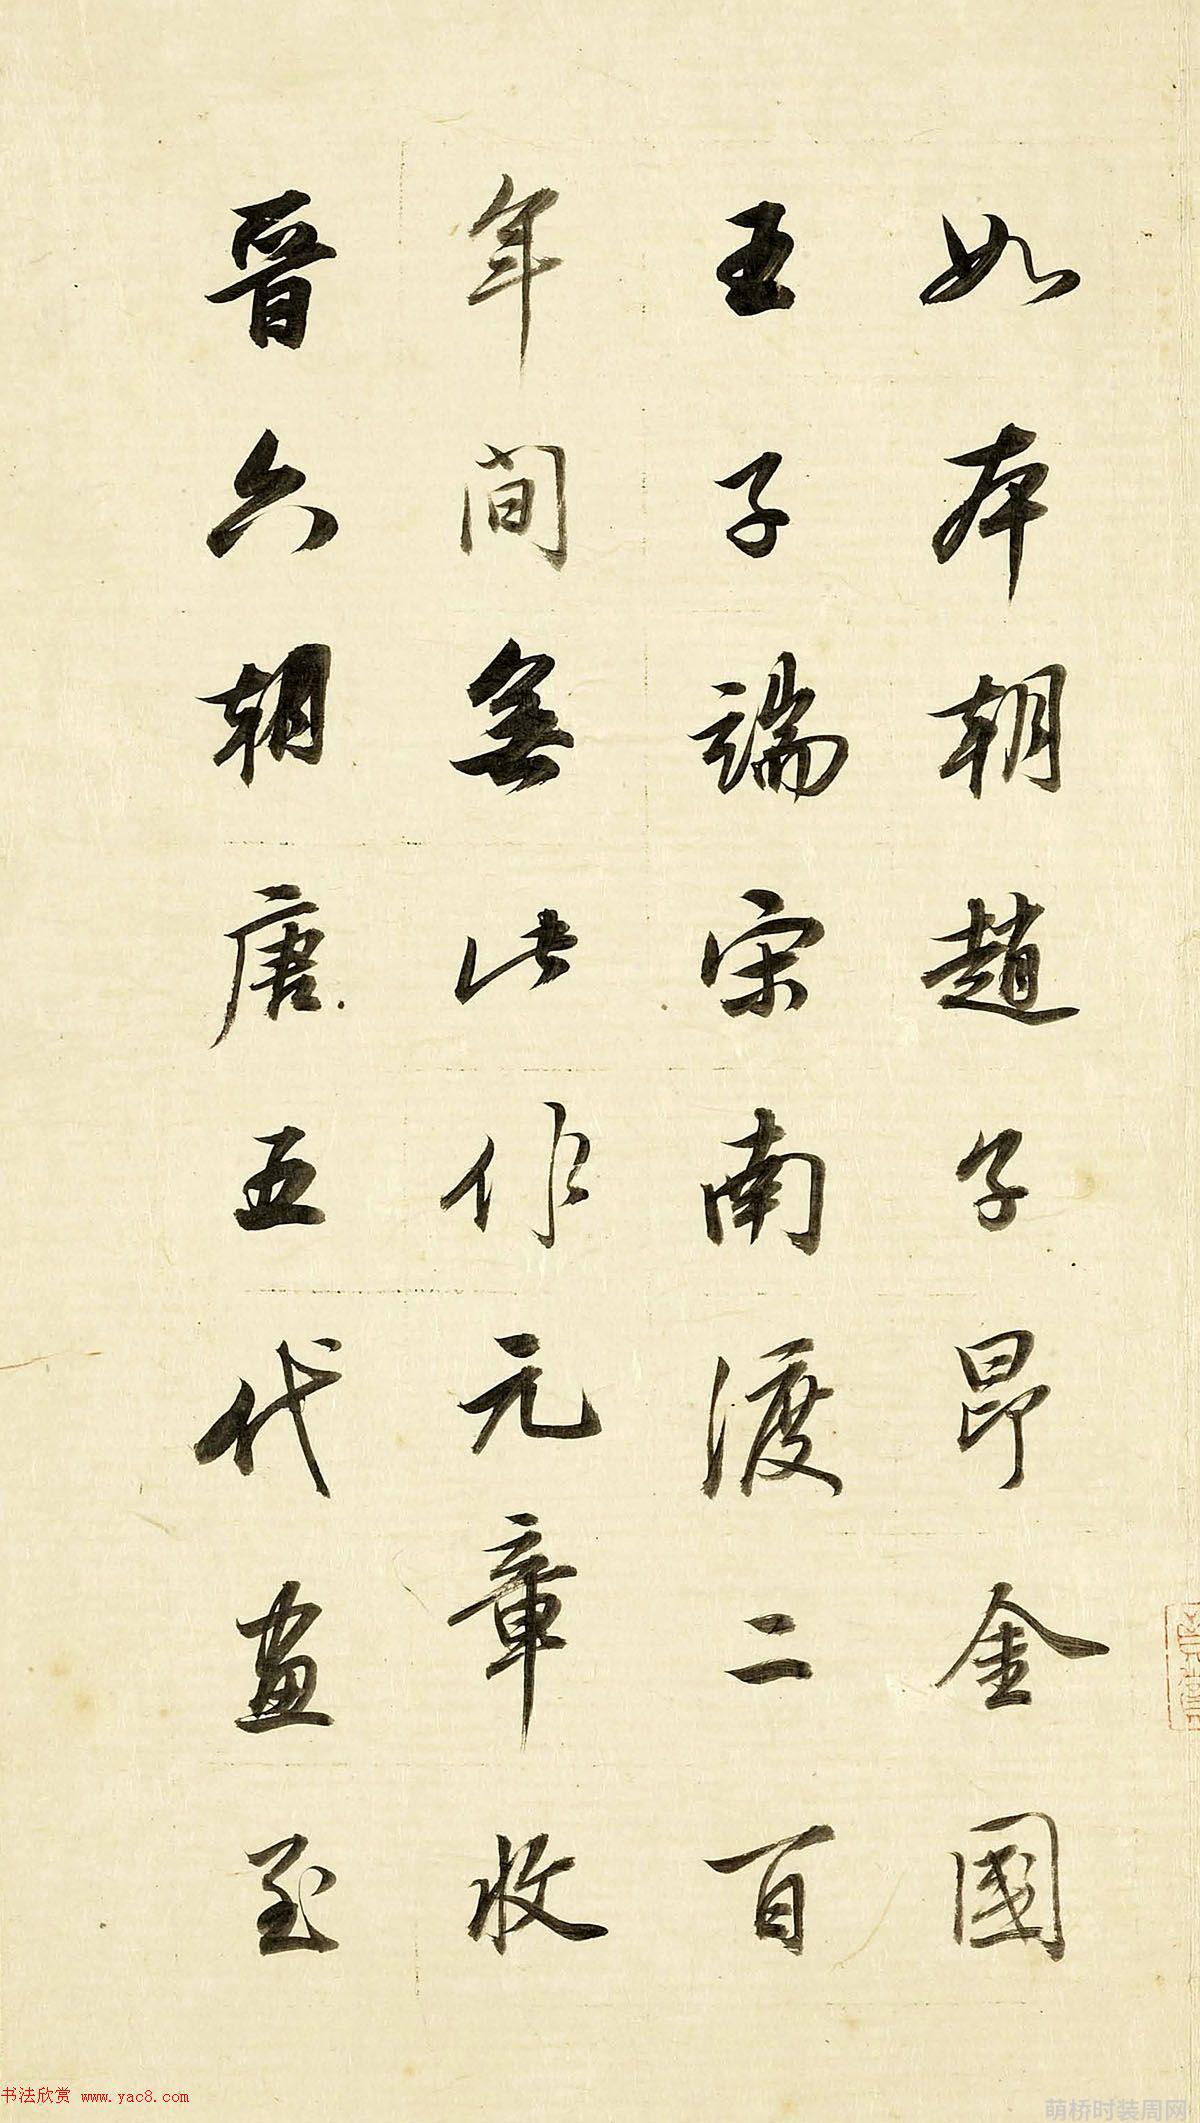 如本朝趙子昂金國
王子端宋南渡二百
年間無此作元章收
晉六朝唐五代畫至
书法欣赏 www.yac8.com
萌桥时装周网